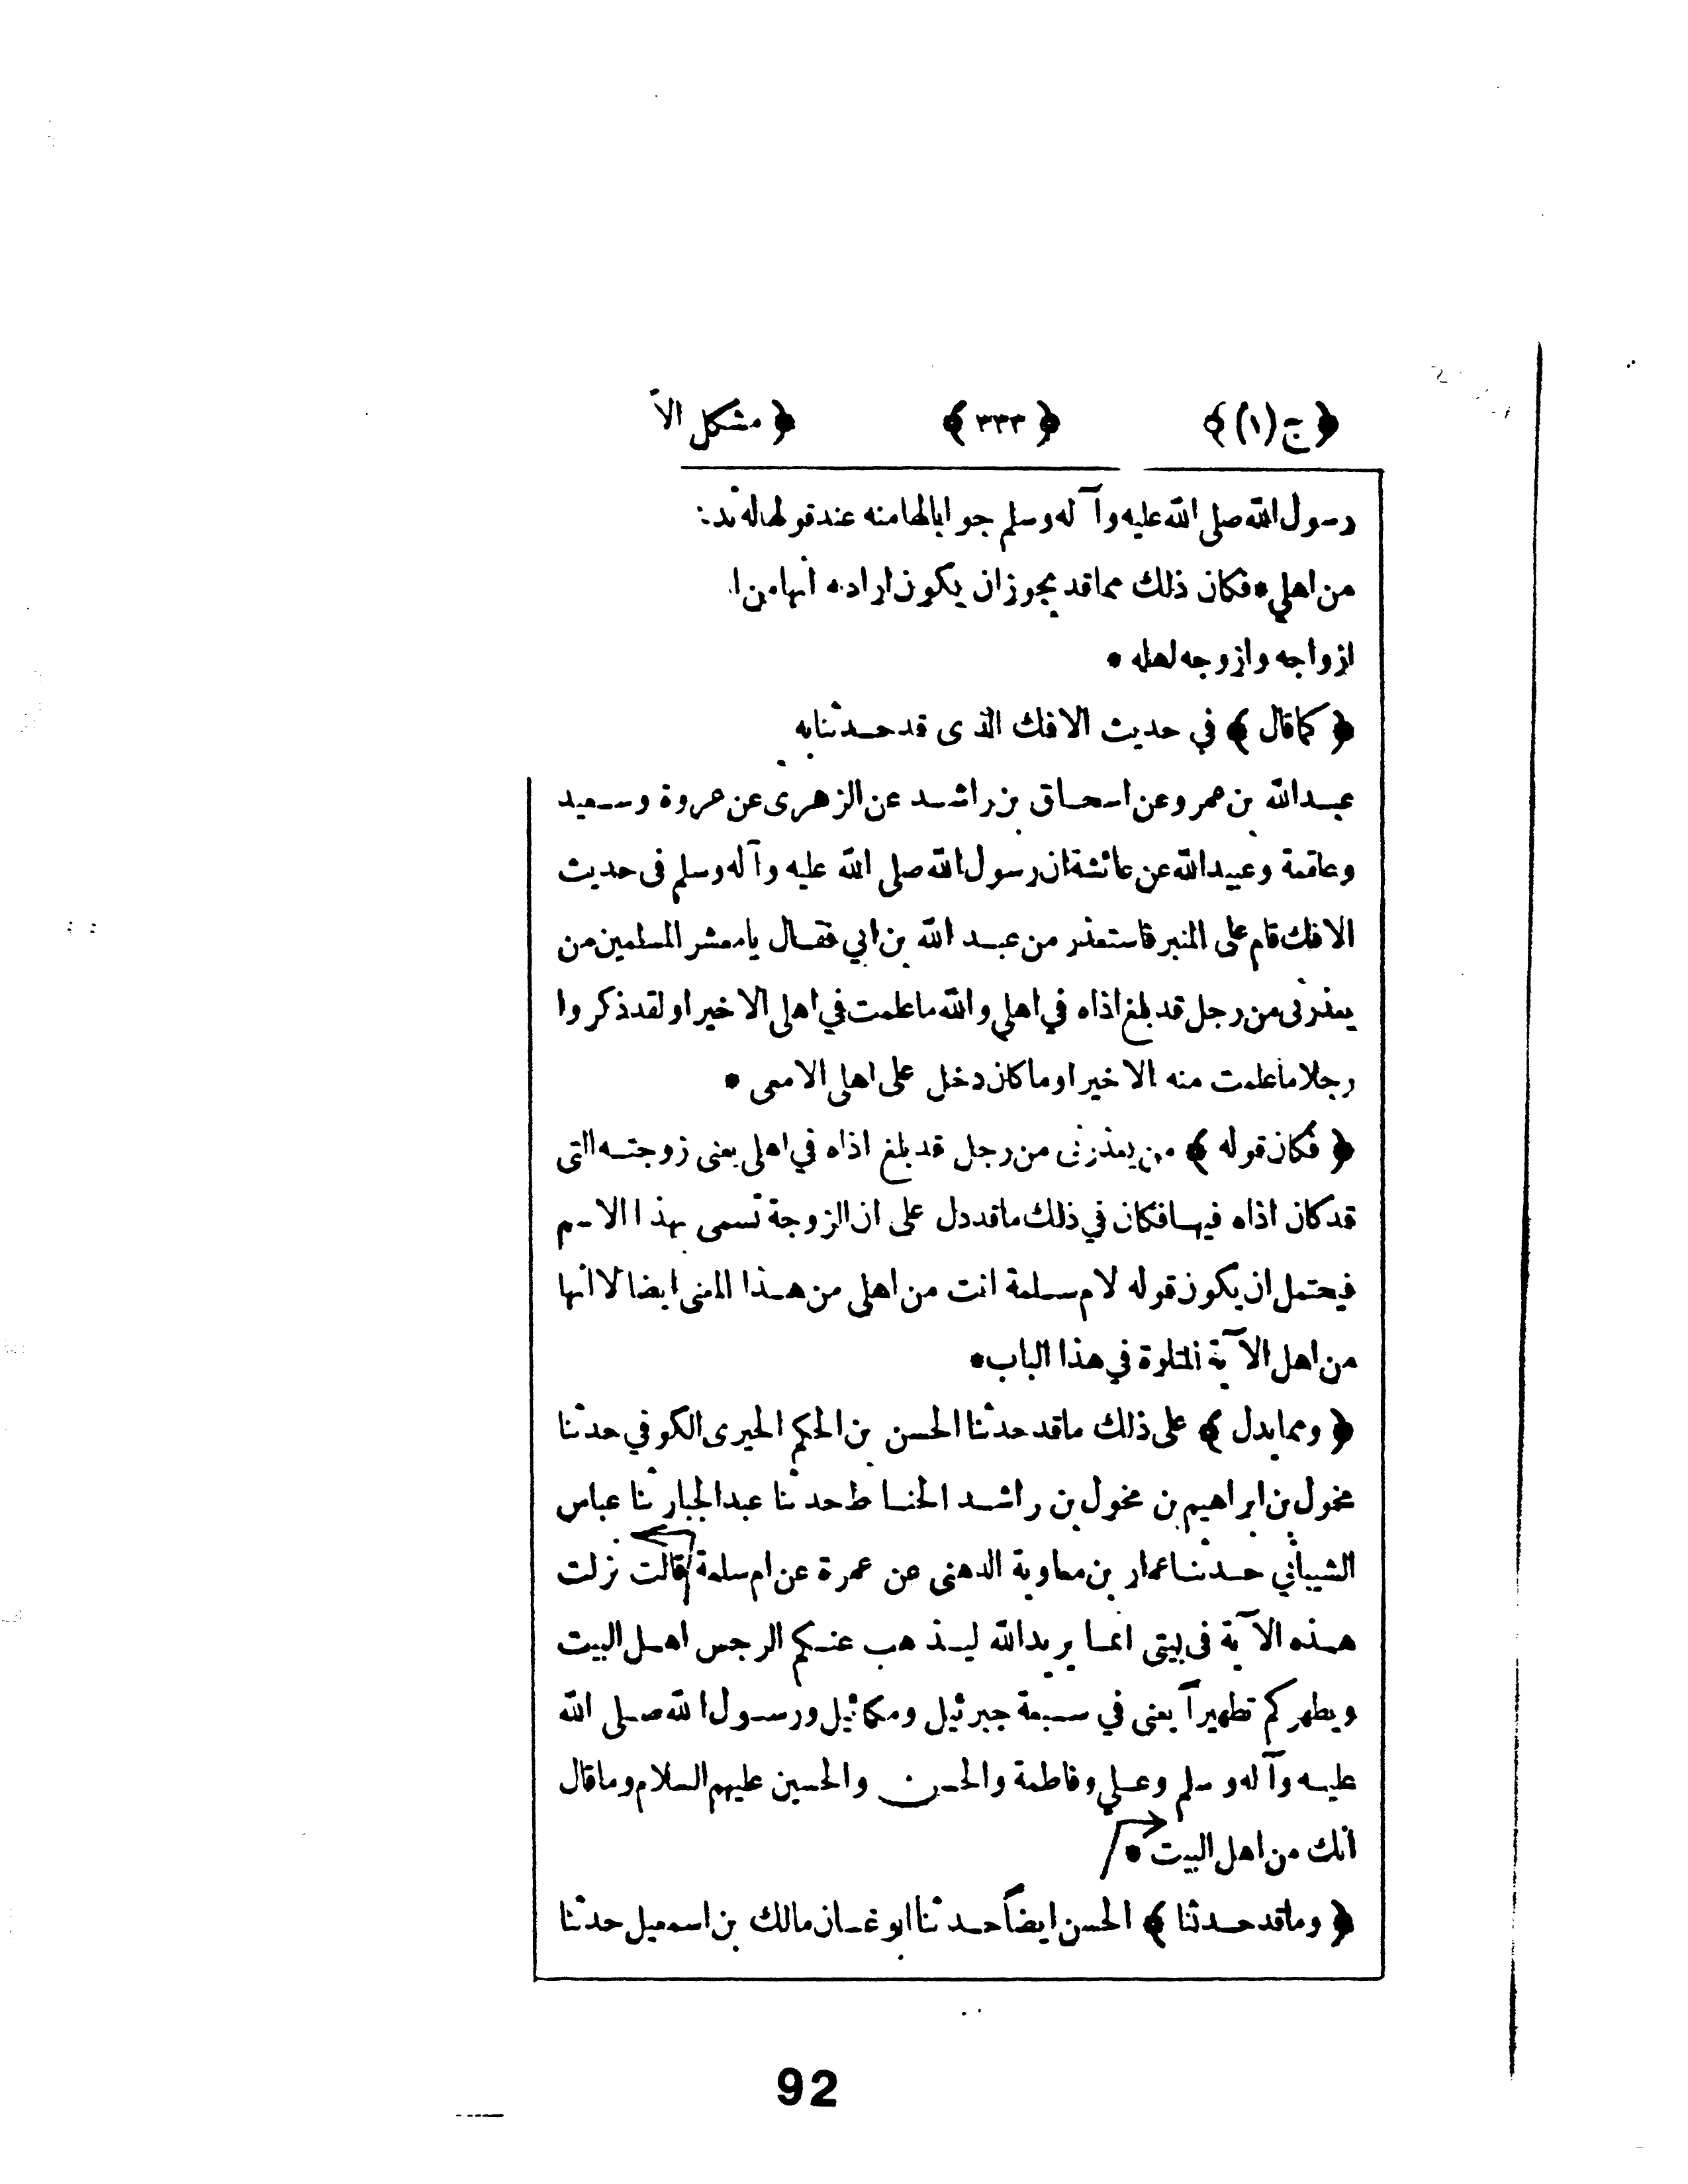 ﴿ ج (١) ﴾ ﴿ ٣٣٣ ﴾ ﴿ مشكل الآ
رسول الله صلى الله عليه وآله وسلم جوابا لها منه عند قولها له
من اهلي • فكان ذلك مما قد يجوز ان يكون اراد به انها من
ازواجه وازوجه لهله •
﴿ كما قال ﴾ في حديث الافك الذى قد حدثنا به
عبد الله بن عمرو عن اسحاق بن راشد عن الزهرى عن عروة وسعيد
وعلقمة وعبيد الله عن عائشة ان رسول الله صلى الله عليه وآله وسلم فى حديث
الافك قام على المنبر فاستعذر من عبد الله بن ابي فقال يا معشر المسلمين من
يعذرنى من رجل قد بلغ اذاه في اهلي والله ما علمت في اهلى الا خيرا ولقد ذكروا
رجلا ما علمت منه الا خيرا وما كان دخل على اهلى الا معى •
﴿ فكان قوله ﴾ من يعذرنى من رجل قد بلغ اذاه في اهلى يعنى زوجته التى
قد كان اذاه فيها فكان في ذلك ما قد دل على ان الزوجة تسمى بهذا الاسم
فيحتمل ان يكون قوله لام سلمة انت من اهلى من هذا المعنى ايضا لا انها
من اهل الآية المتلوة في هذا الباب •
﴿ ومما يدل ﴾ على ذلك ما قد حدثنا الحسن بن الحكم الحيرى الكوفي حدثنا
مخول بن ابراهيم بن مخول بن راشد الحناط حدثنا عبد الجبار ثنا عباس
الشيباني حدثنا عمار بن معاوية الدهنى عن عمرة عن ام سلمة قالت نزلت
هذه الآية فى بيتى انما يريد الله ليذهب عنكم الرجس اهل البيت
ويطهركم تطهيرآ يعنى في سبعة جبرئيل ومكائيل ورسول الله صلى الله
عليه وآله وسلم وعلي وفاطمة والحسن والحسين عليهم السلام وما قال
انك من اهل البيت •
﴿ وما قد حدثنا ﴾ الحسن ايضاً حدثنا ابو غسان مالك بن اسمعيل حدثنا
92